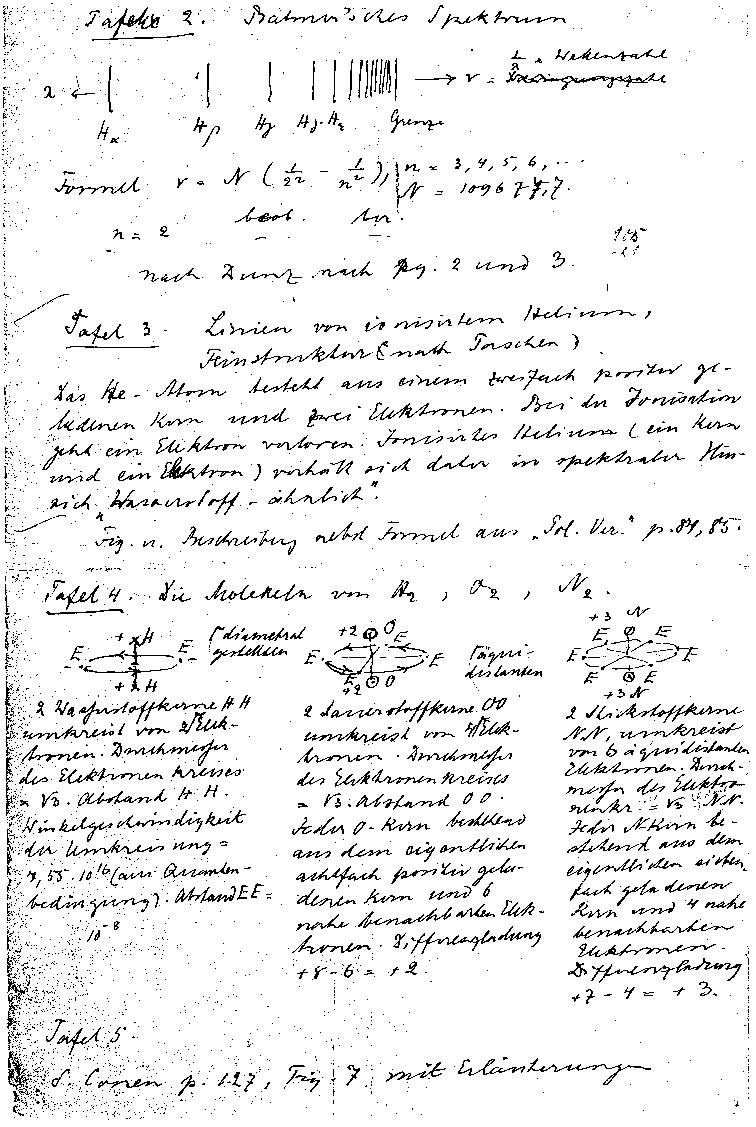 Tafel 2. Balmer'sches Spektrum
λ ← → ν = 1/λ = Wellenzahl
Hα Hβ Hγ Hδ Hε Grenze
Formel ν = N (1/2² − 1/n²), n = 3, 4, 5, 6, ...
N = 109677,7.
n = 2 beob. ber.
nach Dunz nach pg. 2 und 3.
Tafel 3. Linien von ionisirtem Helium,
Feinstruktur (nach Paschen)
Das He-Atom besteht aus einem zweifach positiv ge-
ladenen Kern und zwei Elektronen. Bei der Ionisation
geht ein Elektron verloren. Ionisirtes Helium (ein Kern
und ein Elektron) verhält sich daher in spektraler Hin-
sich „Wasserstoff-ähnlich".
Fig. u. Beschreibung nebst Formel aus „Sol. Ver." p. 84, 85.
Tafel 4. Die Molekeln von H2, O2, N2.
+ H
E E
+ H
diametral
gestellten
+2 O
E E
E E
+2 O
äqui-
distanten
+3 N
E E
E E
E E
+3 N
2 Wasserstoffkerne H H
umkreist von 2 Elek-
tronen. Durchmesser
des Elektronenkreises
= √3. Abstand H H.
Winkelgeschwindigkeit
der Umkreisung =
10¹⁶ (aus Quanten-
bedingung). Abstand E E =
10⁻⁸
2 Sauerstoffkerne O O
umkreist von 4 Elek-
tronen. Durchmesser
des Elektronenkreises
= √3. Abstand O O.
Jeder O-Kern bestehend
aus dem eigentlichen
achtfach positiv gela-
denen Kern und 6
nahe benachbarten Elek-
tronen. Differenzladung
+8 − 6 = +2.
2 Stickstoffkerne
N N, umkreist
von 6 äquidistanten
Elektronen. Durch-
messer des Elektro-
nenkr. = √3 N N.
Jeder N Kern be-
stehend aus dem
eigentlichen sieben-
fach geladenen
Kern und 4 nahe
benachbarten
Elektronen.
Differenzladung
+7 − 4 = +3.
Tafel 5.
p. 127, Fig. 7 mit Erläuterungen